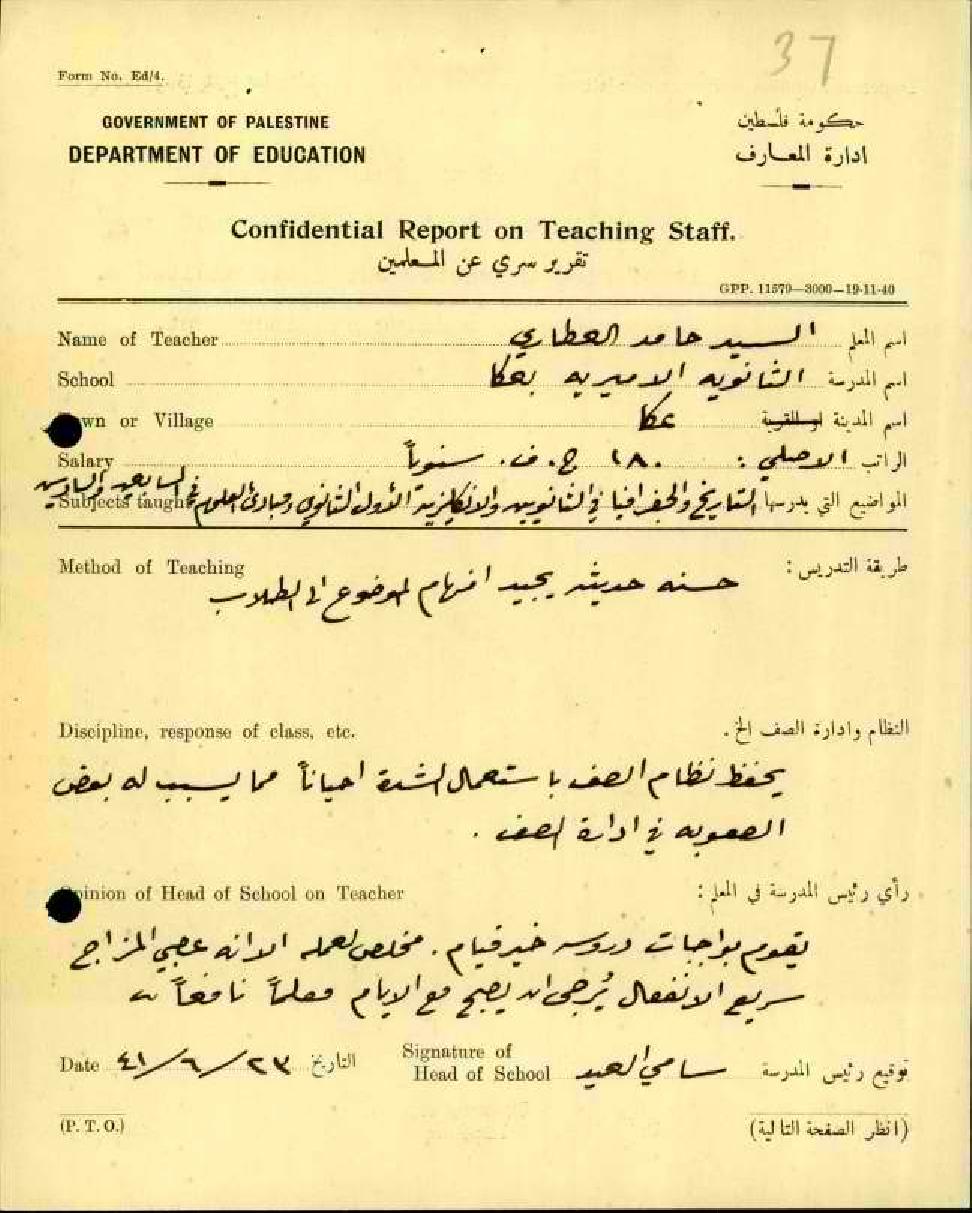 37
Form No. Ed/4.
GOVERNMENT OF PALESTINE
حكومة فلسطين
DEPARTMENT OF EDUCATION
ادارة المعارف
Confidential Report on Teaching Staff.
تقرير سري عن المعلمين
GPP. 11570—3000—19-11-40
Name of Teacher السيد حامد العطاري اسم المعلم
School الثانويه الاميريه بعكا اسم المدرسة
Town or Village عكا اسم المدينة او القرية
Salary الراتب الاصلي : ١٨٠ ج. ف. سنوياً
Subjects taught المواضيع التي يدرسها التاريخ والجغرافيا في الثانويين والانكليزية الأول الثانوي ومبادئ العلوم في السابعين والسادس
Method of Teaching طريقة التدريس :
حسنه حديثه يجيد افهام الموضوع الى الطلاب
Discipline, response of class, etc. النظام وادارة الصف الخ .
يحفظ نظام الصف باستعمال الشدة احياناً مما يسبب له بعض
الصعوبه في ادارة الصف .
Opinion of Head of School on Teacher رأي رئيس المدرسة في المعلم :
يقوم بواجبات دروسه خير قيام . مخلص لعمله الا انه عصبي المزاج
سريع الانفعال يُرجى ان يصبح مع الايام معلماً نافعاً
Date ٢٣/٦/٤١ التاريخ
Signature of Head of School سامي العيد توقيع رئيس المدرسة
(P. T. O.) (انظر الصفحة التالية)